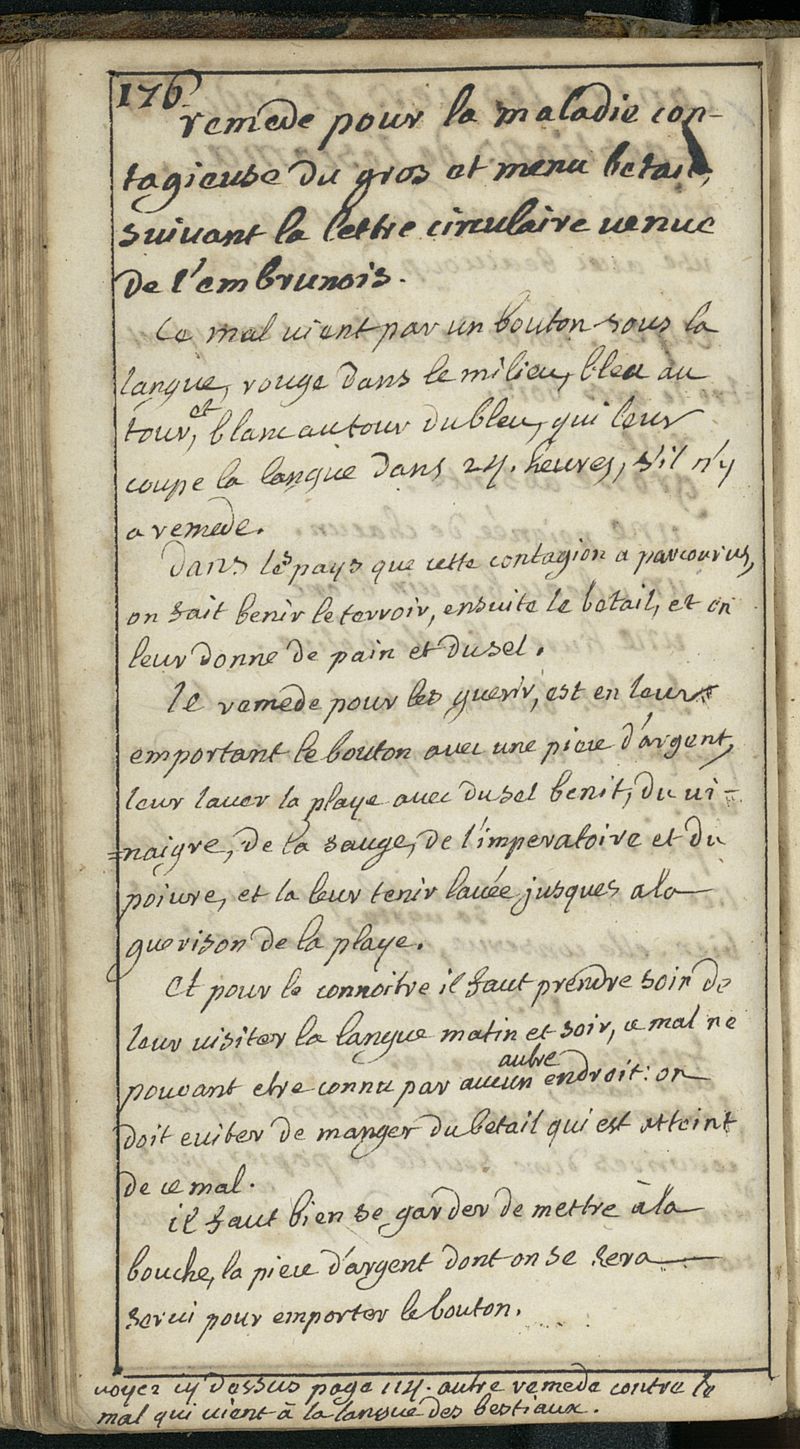 176
remede pour la maladie con-
tagieuse du gros et menu betail,
suivant la lettre circulaire venue
de l'embrunois.
Ce mal vient par un bouton sous la
langue, rouge dans le milieu, bleu au
tour, et blanc autour du bleu, qui leur
coupe la langue dans 24. heures, s'il n'y
a remede.
Dans les pays que cette contagion a parcourus,
on fait benir le terroir, ensuite le betail, et on
leur donne de pain et du sel.
le remede pour les guerir, est en leur
emportant le bouton avec une piece d'argent,
leur laver la playe avec du sel benit, du vi=
=naigre, de la sauge, de l'imperatoire et du
poivre, et la leur tenir lavée jusques a la
guerison de la playe.
Et pour le connoitre il faut prendre soin de
leur visiter la langue matin et soir, ce mal ne
pouvant etre connu par aucun autre endroit: on
doit eviter de manger du betail qui est atteint
de ce mal.
il faut bien se garder de mettre à la
bouche, la piece d'argent dont on se sera
servi pour emporter le bouton.
voyez cy dessus page 114. autre remede contre le
mal qui vient à la langue des bestiaux.